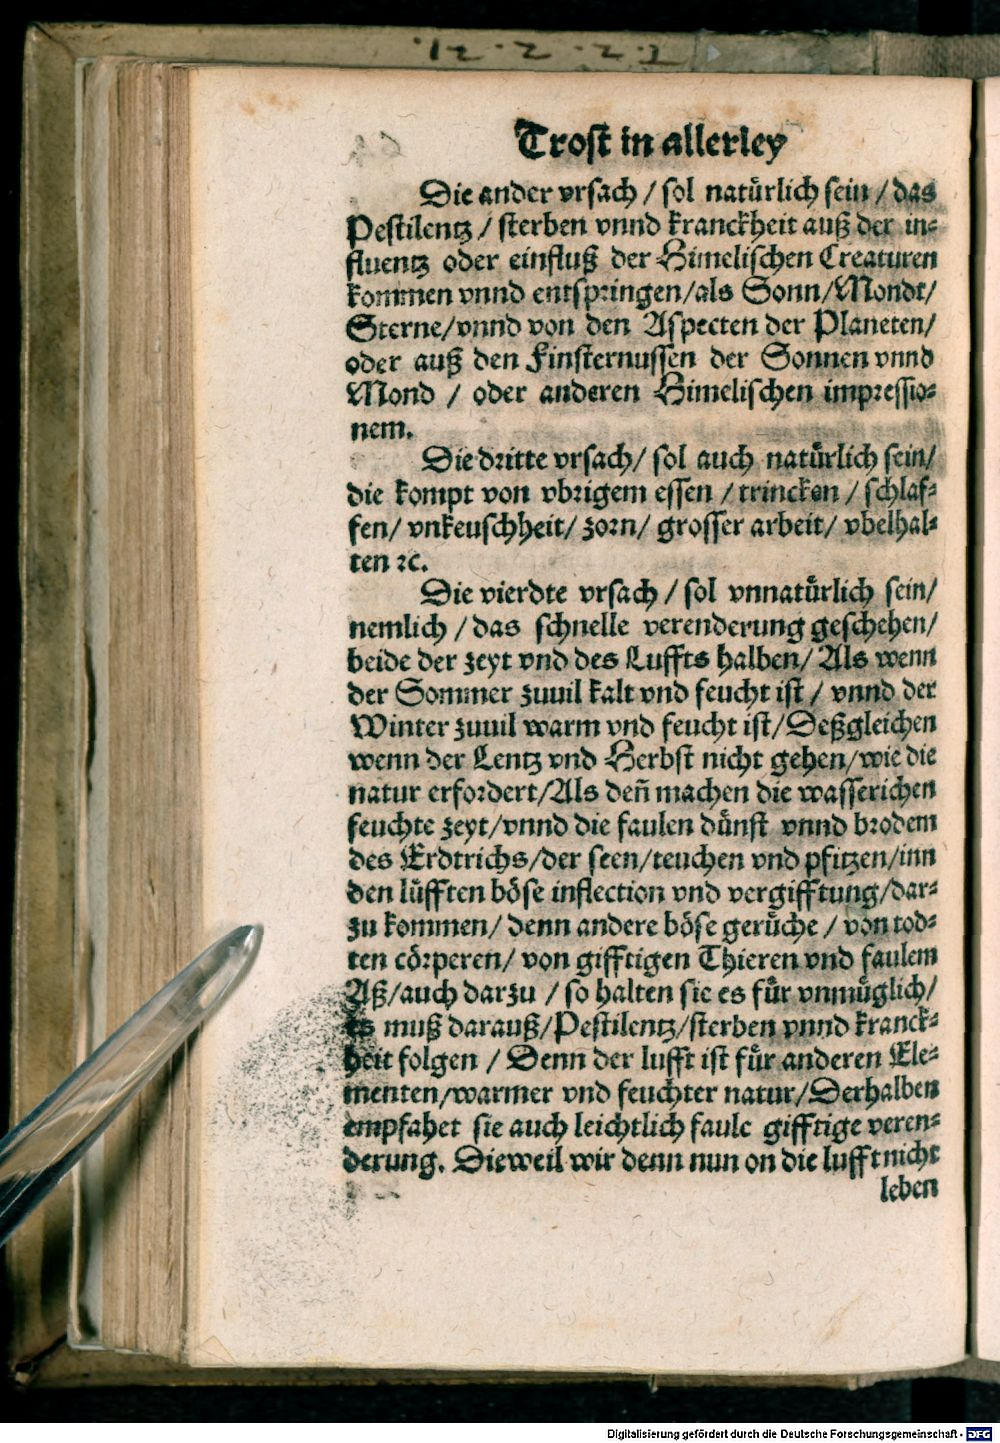 12 · 2 · 2 · 2 ·
Trost in allerley
Die ander vrsach / sol natürlich sein / das
Pestilentz / sterben vnnd kranckheit auß der in⸗
fluentz oder einfluß der Himelischen Creaturen
kommen vnnd entspringen/als Sonn/Mondt/
Sterne/vnnd von den Aspecten der Planeten/
oder auß den Finsternussen der Sonnen vnnd
Mond / oder anderen Himelischen impressio⸗
nem.
Die dritte vrsach/ sol auch natürlich sein/
die kompt von vbrigem essen / trincken / schlaf⸗
fen/ vnkeuschheit/ zorn/ grosser arbeit/ vbelhal⸗
ten ꝛc.
Die vierdte vrsach / sol vnnatürlich sein/
nemlich / das schnelle verenderung geschehen/
beide der zeyt vnd des Luffts halben/ Als wenn
der Sommer zuuil kalt vnd feucht ist / vnnd der
Winter zuuil warm vnd feucht ist/Deßgleichen
wenn der Lentz vnd Herbst nicht gehen/wie die
natur erfordert/Als deñ machen die wasserichen
feuchte zeyt/vnnd die faulen dünst vnnd brodem
des Erdtrichs/der seen/teuchen vnd pfitzen/inn
den lüfften böse inflection vnd vergifftung/dar⸗
zu kommen/ denn andere böse gerüche / von tod⸗
ten cörperen/ von gifftigen Thieren vnd faulem
Aß/auch darzu / so halten sie es für vnmüglich/
es muß darauß/Pestilentz/sterben vnnd kranck⸗
heit folgen / Denn der lufft ist für anderen Ele⸗
menten/warmer vnd feuchter natur/Derhalben
empfahet sie auch leichtlich faule gifftige veren⸗
derung. Dieweil wir denn nun on die lufft nicht
leben
Digitalisierung gefördert durch die Deutsche Forschungsgemeinschaft - DFG